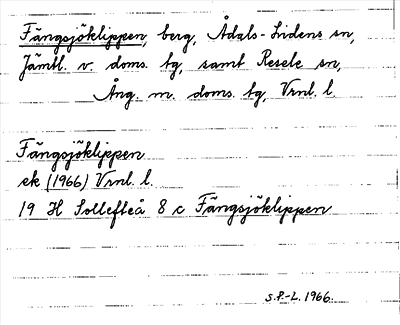 Fängsjöklippen, berg, Ådals-Lidens sn,
Jämtl. v. doms. tg, samt Resele sn,
Ång. m. doms. tg, Vrnl. l.
Fängsjöklippen
ek (1966) Vrnl. l.
19 H Sollefteå 8 c Fängsjöklippen
S.P.-L. 1966.